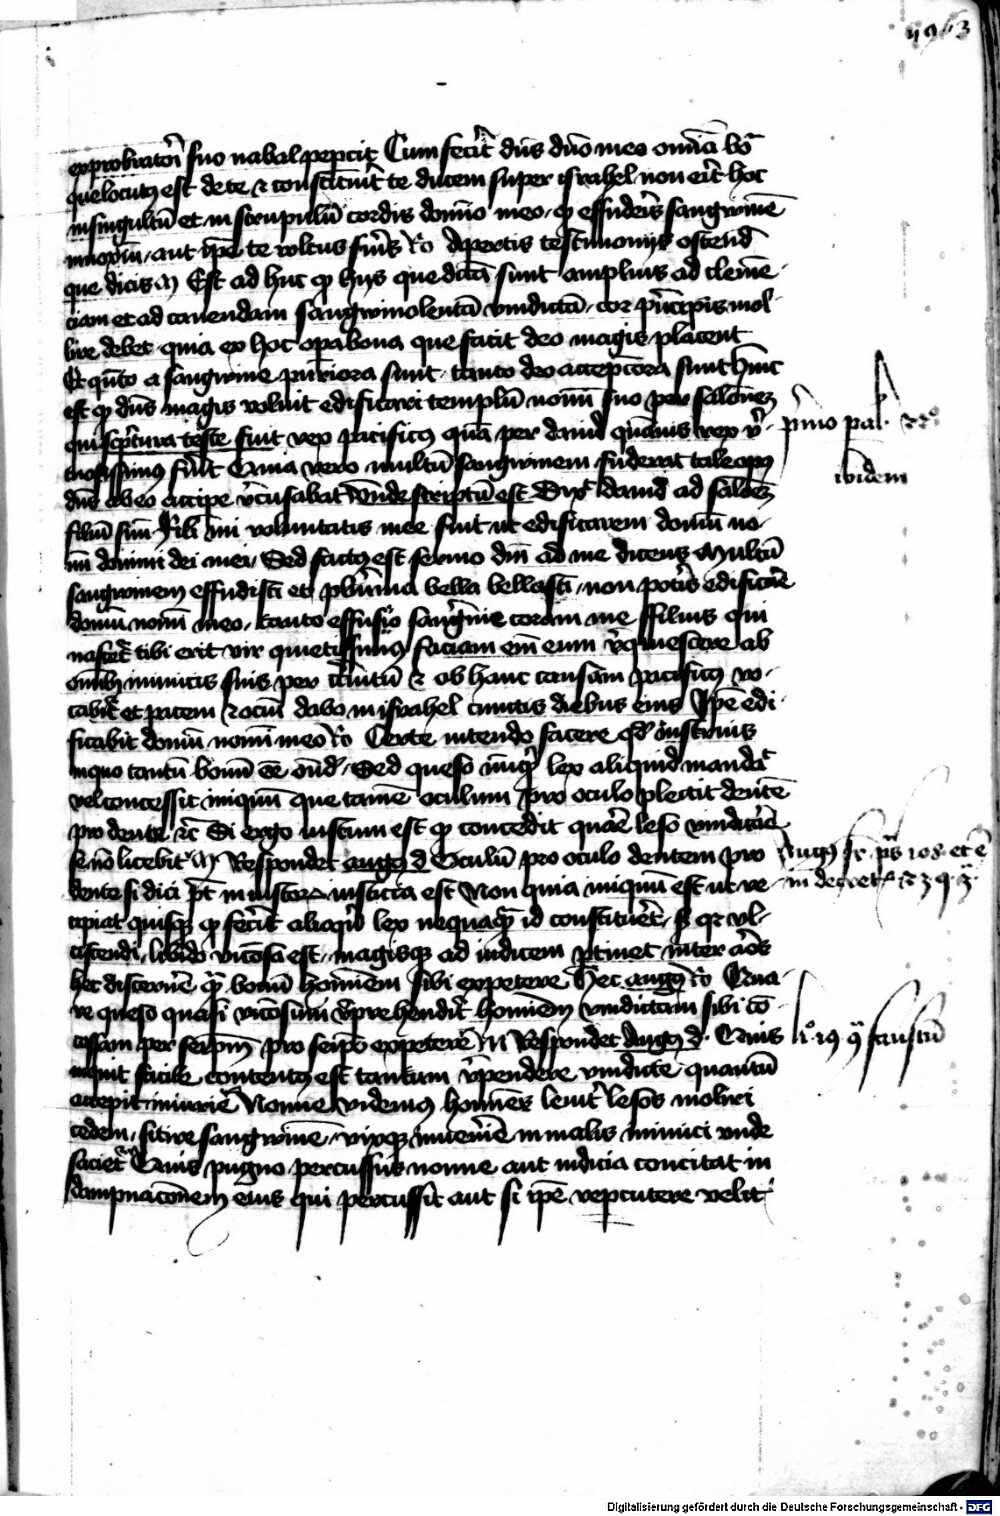 exprobratori suo nabal pepcit Cum fecit dns dno meo omnia bo
que locutus est de te et constituit te ducem super israhel non erit hoc
in singultū et in scrupulū cordis domino meo qd effuderis sangwinē
innoxiū aut ipe te ultus fueris Ro Apertis testimonijs ostend
que dicis M Est ad huc qd hijs que dicta sunt amplius ad clemē
ciam et ad cauendam sangwinolentā vindictā cor principis mol
lire debet quia ex hoc opa bona que facit deo magis placent
Et qnto a sangwine puriora sunt tanto deo acceptiora sunt hinc
est qd dns magis voluit edificari templū nomini suo per salonē
qui scptura teste fuit rex pacificus quā per dauid quāuis rex v
tuosissimus fuit Quia vero multū sangwinem fuderat tale opus
dns ab eo accipe recusabat Vnde scriptū est Dix dauid ad salonē
filiū suū Fili mi voluntatis mee fuit ut edificarem domū no
mi domini dei mei Sed factus est sermo dni ad me dicens Multū
sangwinem effudisti et plurima bella bellasti non poteris edificare
domū nomini meo tanto effuso sangwine coram me ffilius qui
nascet tibi erit vir quietissimus faciam em eum requiescere ab
omnibus inimicis suis per circuitū et ob hanc causam pacificus vo
cabit et pacem et ociū dabo in israhel cunctis diebus eius Ipe edi
ficabit domū nomini meo Ro Certe intendo facere qd instruis
in quo tantū bonū ee ond Sed queso nūquid lex aliquid mandat
vel concessit iniquū que tamē oculum pro oculo plectit dentē
pro dente etc Si ergo iustum est qd concedit quare leso vindictā
non licebit M Respondet augus d Oculū pro oculo dentem pro
dente si dici pt iniustorū iusticia est Non quia iniquū est ut re
cipiat quisque qd fecit alioquin lex nequaquam id constitueret sed qr vl
ciscendi libido viciosa est magisque ad iudicem ptinet inter alios
hec discernere quam bonū hominem sibi expetere Hec augus Ro Qua
re queso quasi viciosum reprehendit hominem vindictam sibi con
cessam per seipm pro seipso expetere M Respondet Augus d Quis
inquit facile contentus est tantum rependere vindicte quantū
accepit iniurie Nonne videmus homines leuiter lesos moliri
cedem sitire sangwinē vixque inuenire in malis inimici vnde
saciet Quis pugno percussus nonne aut iudicia concitat in
dampnacionem eius qui percussit aut si ipe repcutere velit
primo pal 22o
ibidem
Augus sr ps 108 et ē
in decret 23 q 3
li 19 faustū